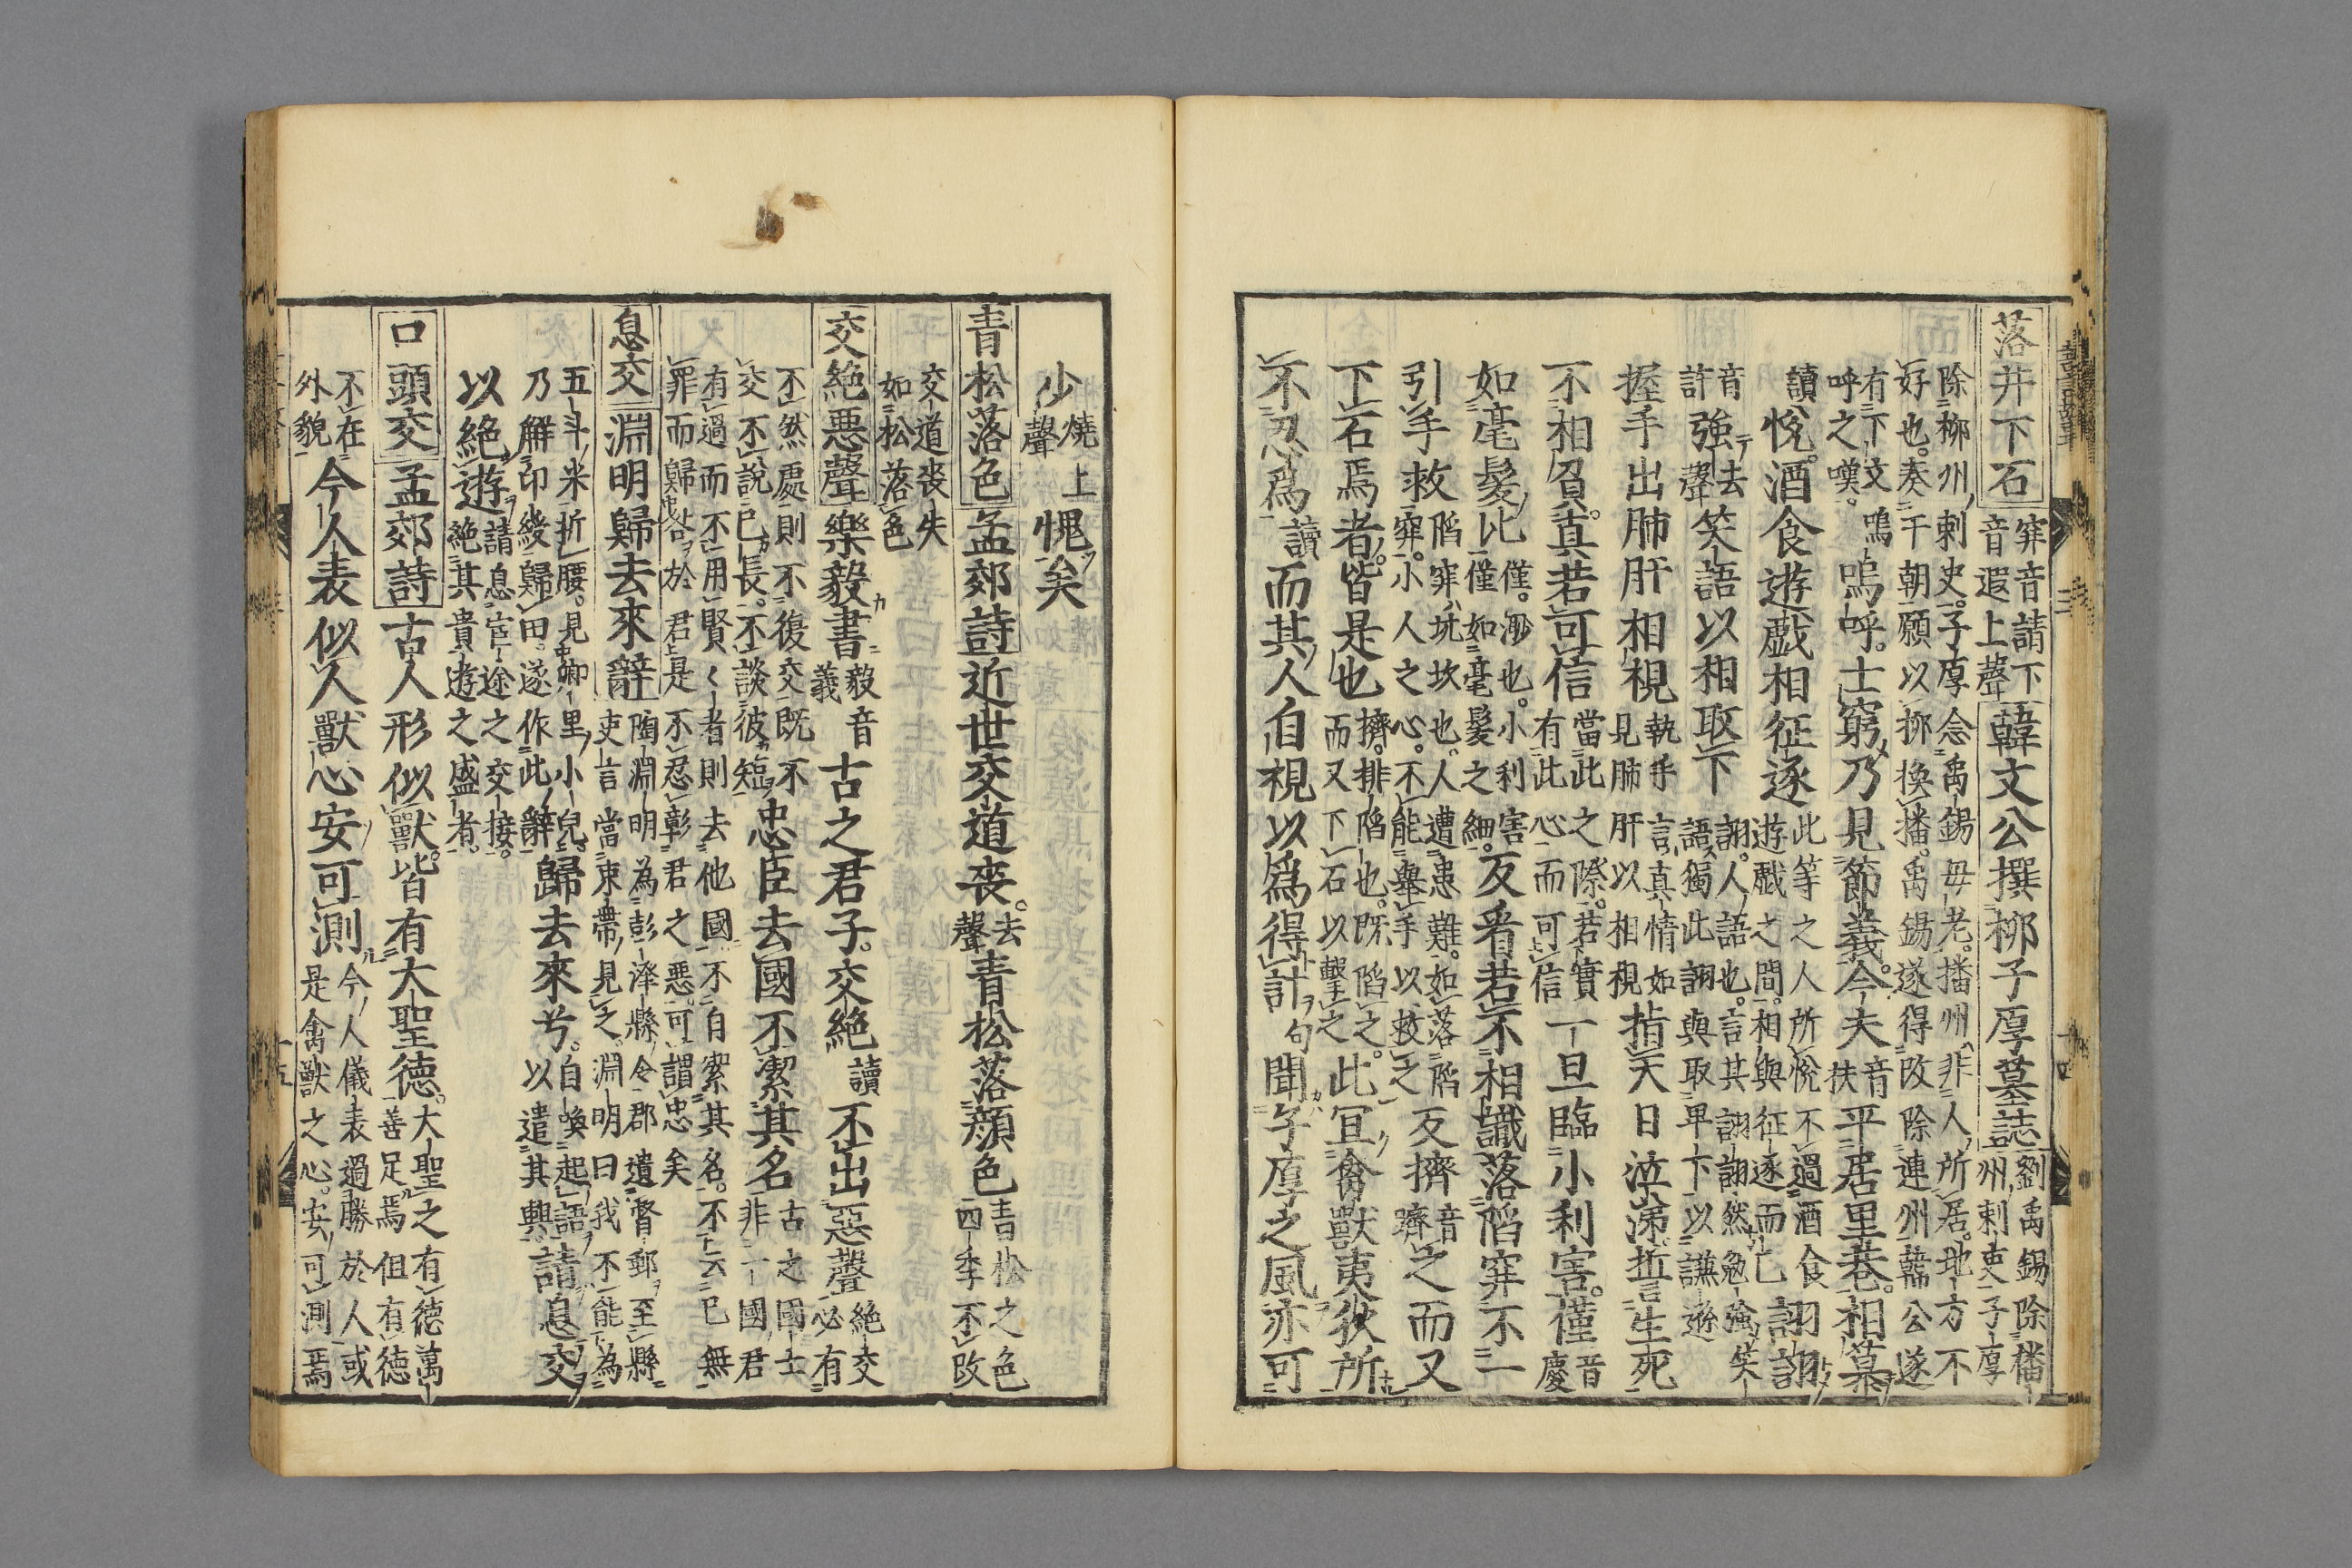 落井下石 穽音請下音遐上聲 韓文公撰柳子厚墓誌 劉禹錫除播州刺史子厚
除柳州刺史。子厚念禹錫毋老。播州非人所居。地方不好也。奏干朝願以柳換播。禹錫遂得改除連州韓公遂
有下文嗚呼之嘆。嗚呼。士窮乃見節義。今夫音扶平居里巷。相慕
讀悅。酒食遊戲相征逐 此等之人所悅不過酒食遊戲之間。相與征逐而已 詡詡
音許強去聲笑語以相取下 詡。人語也。言其詡詡然勉強笑語獨此詡與取卑下以謙遜
握手出肺肝相視 執手言真情如見肺肝以相視 指天日泣涕誓生死
不相負。真若可信 當此之際。若實有此心而可信 一旦臨小利害。僅音慶
如毫髮比 僅。渺也。小利害僅如毫髮之細。 反看若不相識落陷穽不一
引手救 陷穽坑坎也。人遭患難。如落陷穽。小人之心。不能舉手以救之 反擠音躋之而又
下石焉者。皆是也 擠。排陷也。既陷之。而又下石以擊之 此宜禽獸夷狄所
不忍為讀而其人自視以為得計句聞子厚之風亦可
少燒上聲愧矣
青松落色 孟郊詩 近世交道喪。去聲青松落顏色 青松之色四季不改
交道喪失如松落色
交絕惡聲 樂毅書 毅音義 古之君子。交絕讀不出惡聲 絕交必有
不然處則不復交既不交不說已長。不談彼短 忠臣去國不潔其名 古之國士非一國君
有過而不用賢く者則去他國不自潔其名。不云已無罪而歸咎於君上是不忍彰君之惡。可謂忠矣
息交 淵明歸去來辭 陶淵明為彭澤縣令郡遣督郵至縣吏言當束帶見之。淵明曰我不能為
五斗米折腰。見鄉里小兒乃解印綬歸田。遂作此辭 歸去來兮。自喚起語以遣其興 請息交
以絕遊 請息宦途之交接。絕其貴遊之盛者。
口頭交 孟郊詩 古人形似獸。皆有大聖德。 大聖之有德萬善足焉但有德
不在外貌 今人表似人獸心安可測 今人儀表過勝於人或是禽獸之心。安可測焉